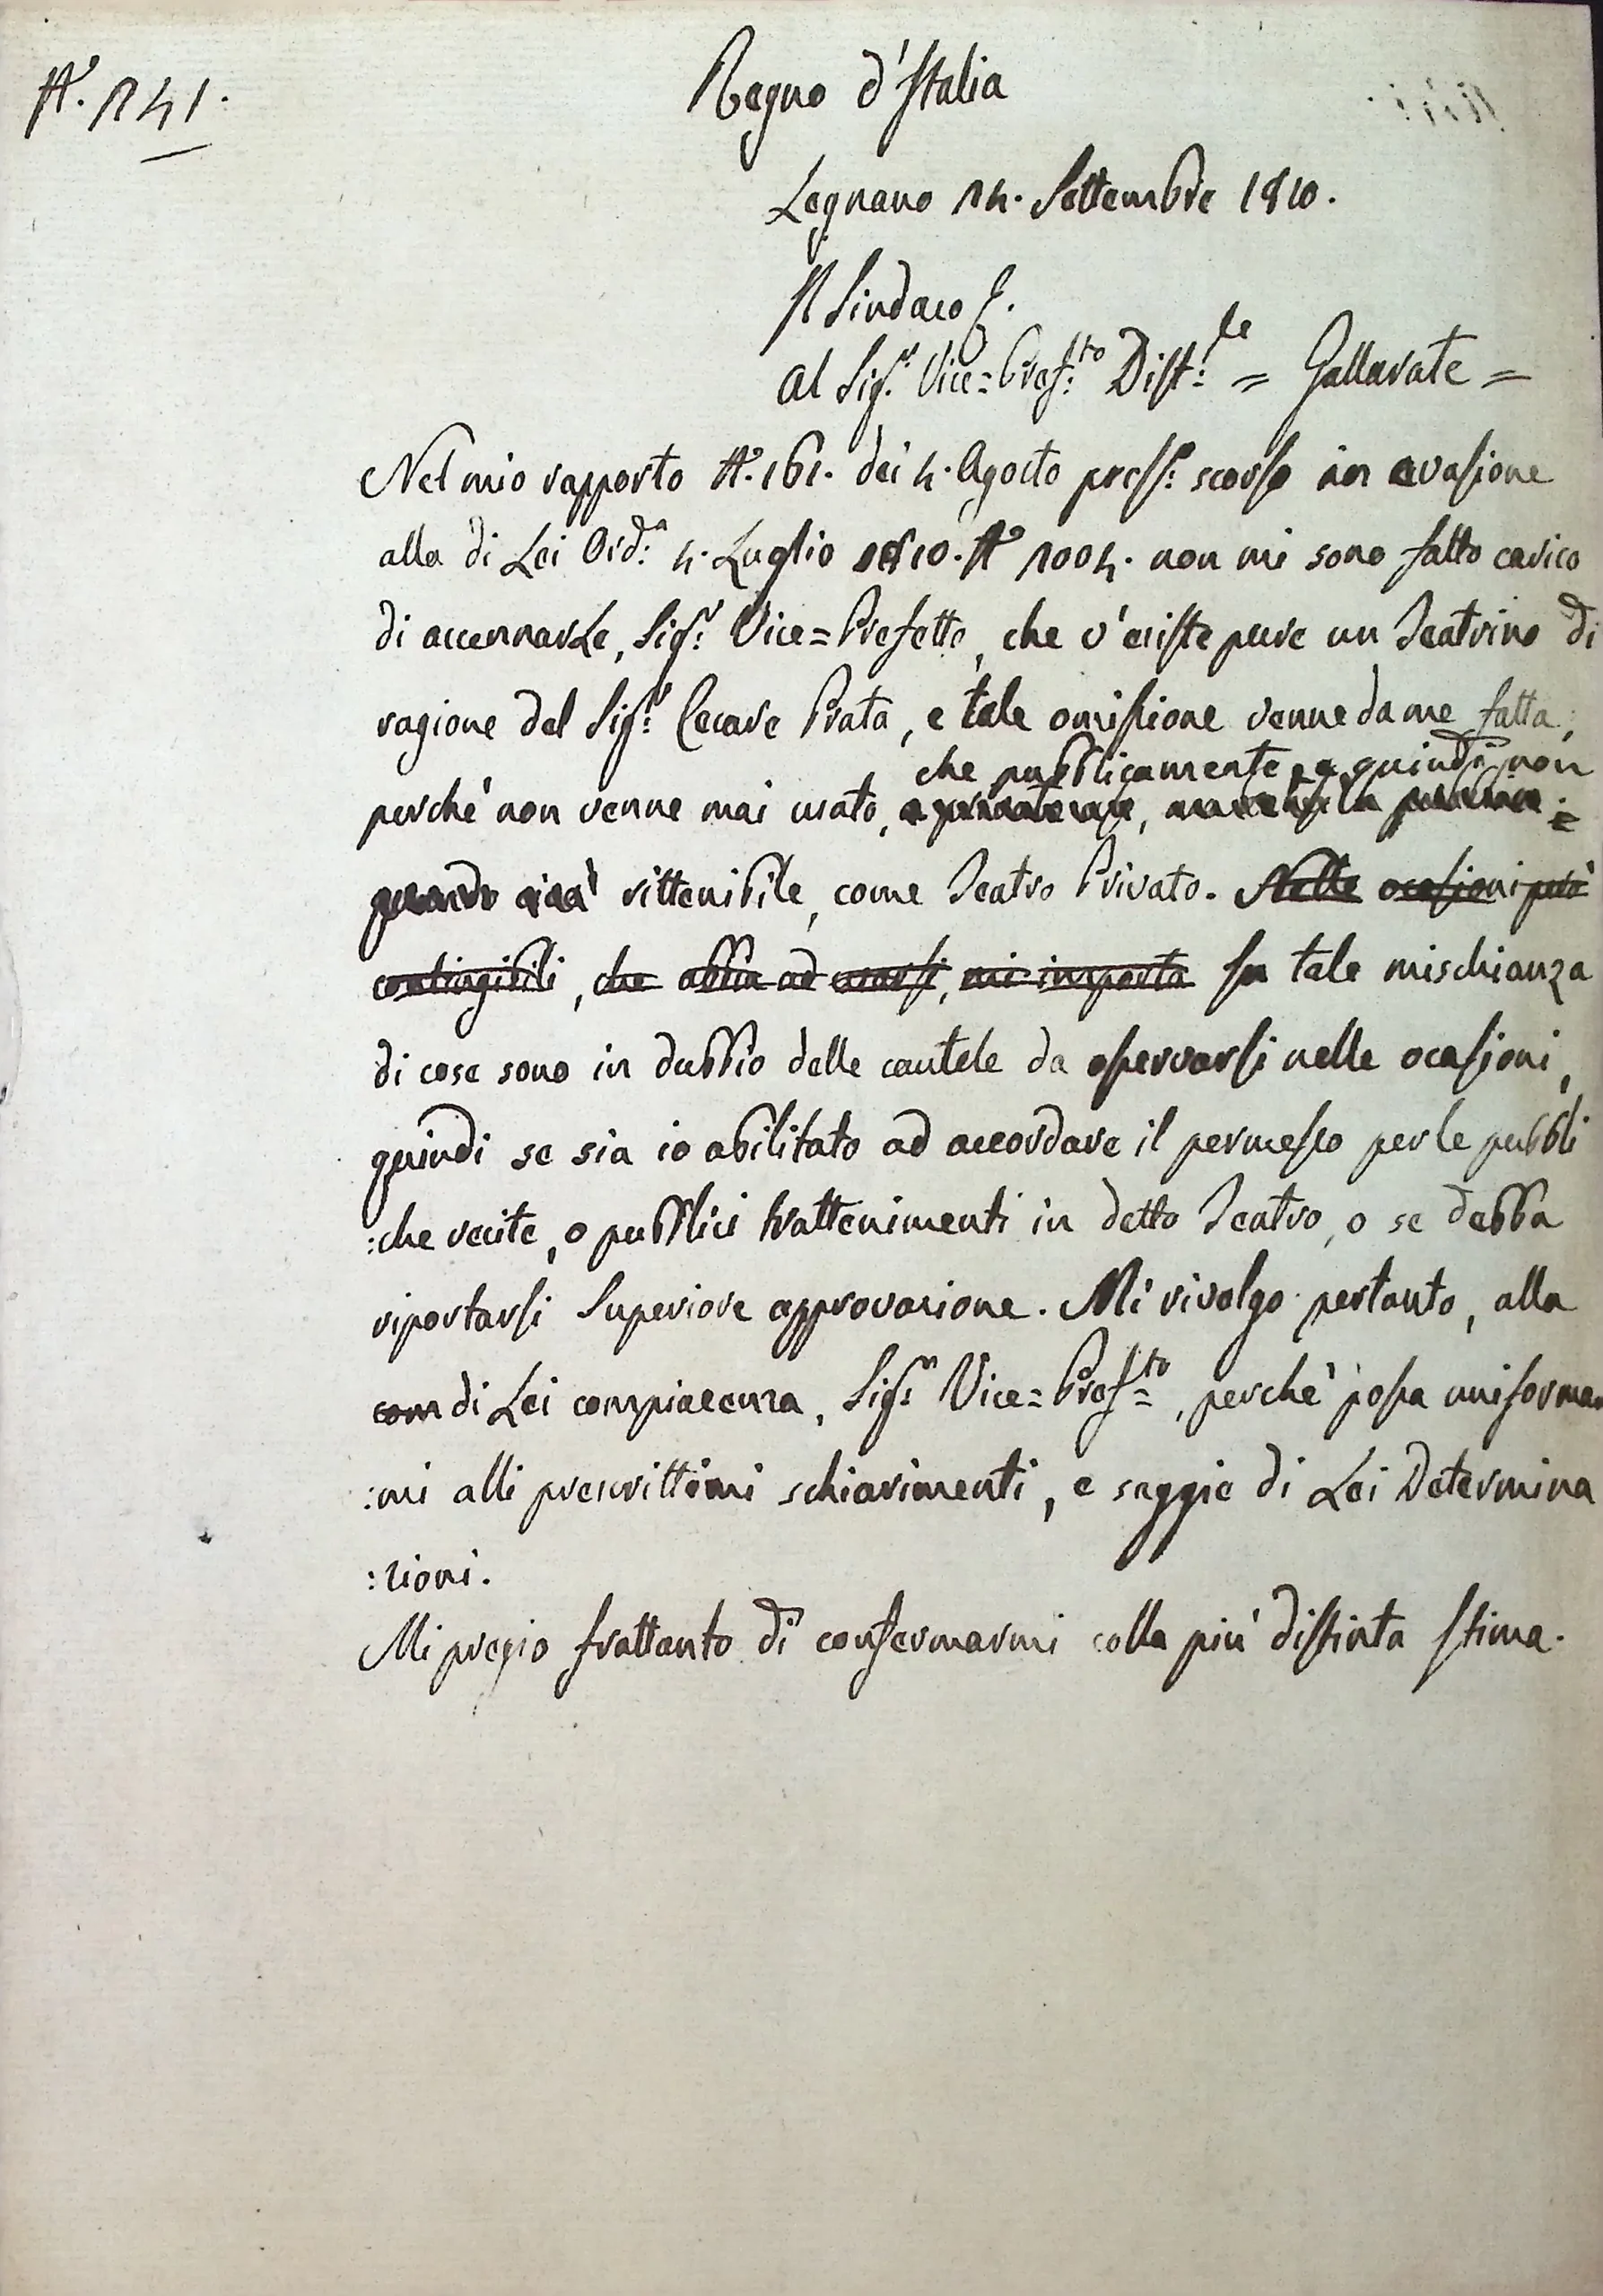 N.° 141.
Regno d'Italia
Legnano 14. Settembre 1810.
Il Sindaco
Al Sig.r Vice=Pref:to Dist:le = Gallarate =
Nel mio rapporto N.° 161. dei 4. Agosto pross.° scorso in evasione
alla di Lei Ord.a 4. Luglio 1810. N° 1004. non mi sono fatto carico
di accennarLe, Sig.r Vice=Prefetto, che v'esiste pure un Teatrino di
ragione del Sig.r Cesare Prata, e tale omissione venne da me fatta,
che pubblicamente, e quindi non
perchè non venne mai usato,
rittenibile, come Teatro Privato. Nelle ocasioni però
contingibili, che abbia ad usarsi, mi importa In tale mischianza
di cose sono in dubbio delle cautele da osservarsi nelle ocasioni,
quindi se sia io abilitato ad accordare il permesso per le pubbli
:che recite, o pubblici trattenimenti in detto Teatro, o se debba
riportarsi Superiore approvazione. Mi rivolgo pertanto, alla
com di Lei compiacenza, Sig.r Vice=Pref=to, perchè possa uniformar
:mi alli prescrittimi schiarimenti, e saggie di Lei Determina
:zioni.
Mi pregio frattanto di confermarmi colla più distinta stima.